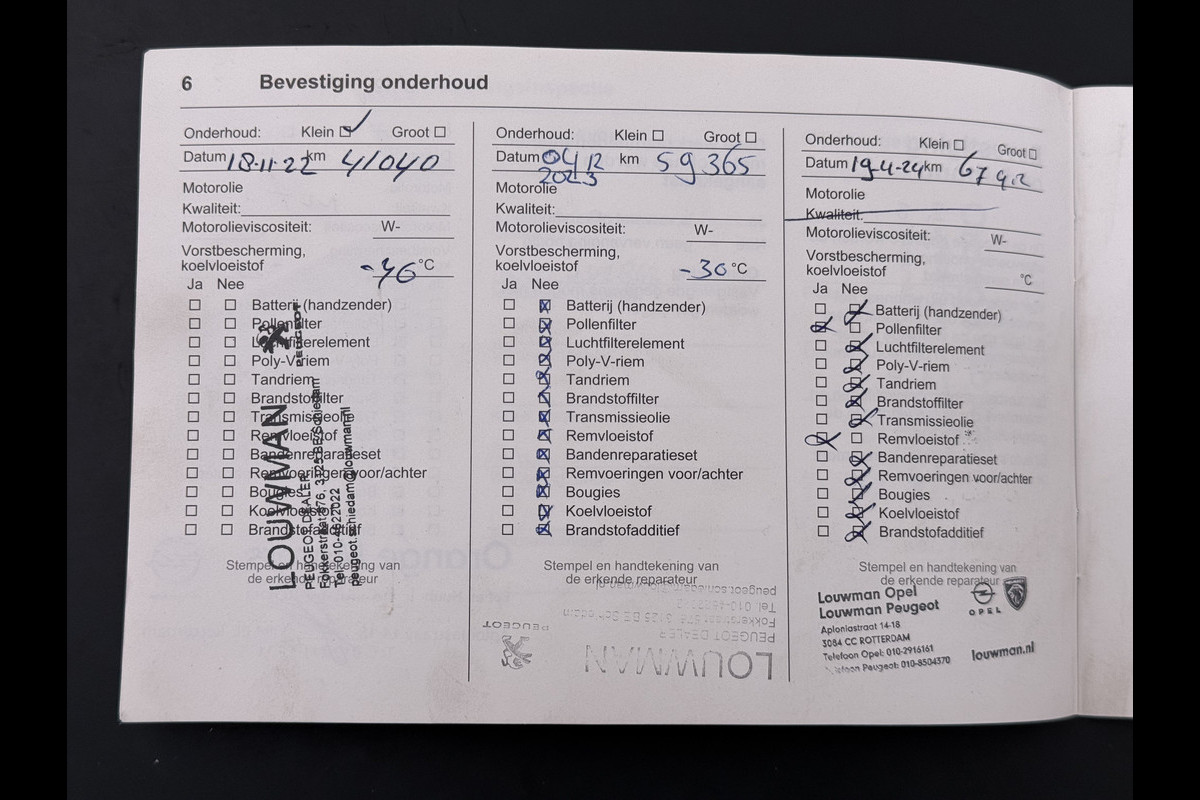 6 Bevestiging onderhoud
Onderhoud: Klein Groot
Datum 18-11-22 km 41040
Motorolie
Kwaliteit:
Motorolieviscositeit: W-
Vorstbescherming,
koelvloeistof -36 °C
Ja Nee
Batterij (handzender)
Pollenfilter
Luchtfilterelement
Poly-V-riem
Tandriem
Brandstoffilter
Transmissieolie
Remvloeistof
Bandenreparatieset
Remvoeringen voor/achter
Bougies
Koelvloeistof
Brandstofadditief
Stempel en handtekening van
de erkende reparateur
PEUGEOT
LOUWMAN
PEUGEOT DEALER
Fokkerstraat 376, 3125 BE Schiedam
Tel. 010-4622022
peugeot.schiedam@louwman.nl
Onderhoud: Klein Groot
Datum 04 12 2023 km 59365
Motorolie
Kwaliteit:
Motorolieviscositeit: W-
Vorstbescherming,
koelvloeistof -30 °C
Ja Nee
Batterij (handzender)
Pollenfilter
Luchtfilterelement
Poly-V-riem
Tandriem
Brandstoffilter
Transmissieolie
Remvloeistof
Bandenreparatieset
Remvoeringen voor/achter
Bougies
Koelvloeistof
Brandstofadditief
Stempel en handtekening van
de erkende reparateur
LOUWMAN
PEUGEOT
PEUGEOT DEALER
Onderhoud: Klein Groot
Datum 19-4-24 km 67912
Motorolie
Kwaliteit:
Motorolieviscositeit: W-
Vorstbescherming,
koelvloeistof °C
Ja Nee
Batterij (handzender)
Pollenfilter
Luchtfilterelement
Poly-V-riem
Tandriem
Brandstoffilter
Transmissieolie
Remvloeistof
Bandenreparatieset
Remvoeringen voor/achter
Bougies
Koelvloeistof
Brandstofadditief
Stempel en handtekening van
de erkende reparateur
Louwman Opel
Louwman Peugeot
OPEL
Aploniastraat 14-18
3084 CC ROTTERDAM
Telefoon Opel: 010-2916161
Telefoon Peugeot: 010-8504370
louwman.nl